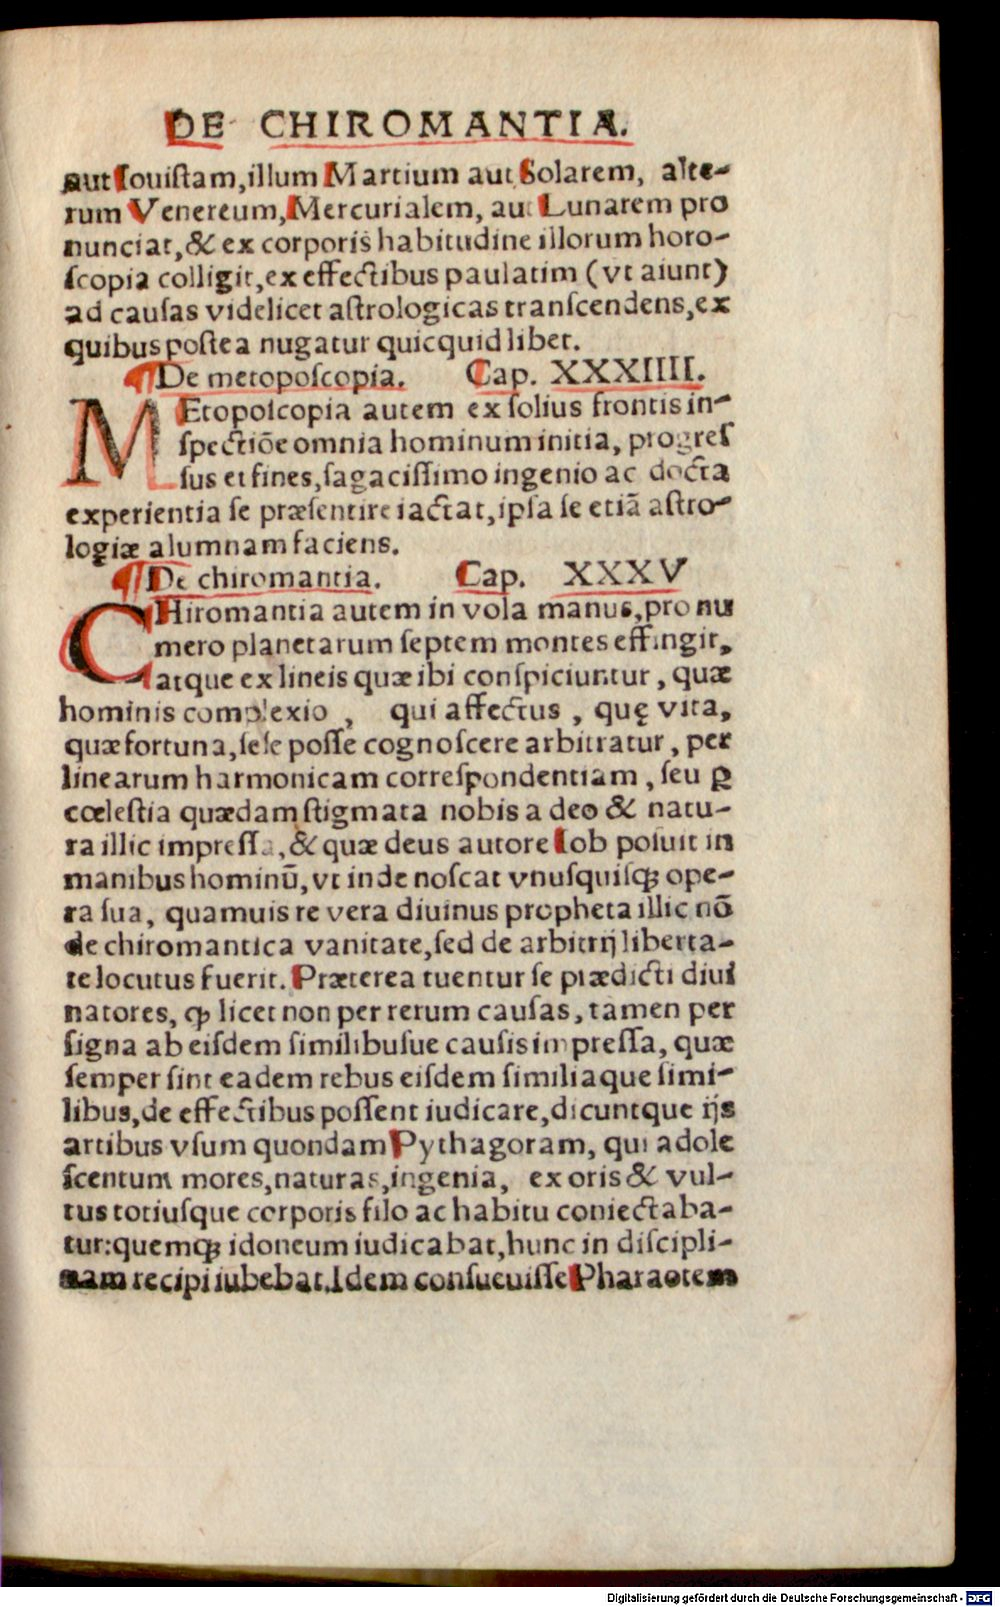 DE CHIROMANTIA.
aut Iouistam, illum Martium aut Solarem, alte-
rum Venereum, Mercurialem, aut Lunarem pro
nunciat, & ex corporis habitudine illorum horo-
ſcopia colligit, ex effectibus paulatim (vt aiunt)
ad cauſas videlicet aſtrologicas tranſcendens, ex
quibus poſtea nugatur quicquid libet.
¶ De metopoſcopia. Cap. XXXIIII.
MEtopoſcopia autem ex ſolius frontis in-
ſpectiõe omnia hominum initia, progreſ
ſus et fines, ſagaciſſimo ingenio ac docta
experientia ſe præſentire iactat, ipſa ſe etiã aſtro-
logiæ alumnam faciens.
¶ De chiromantia. Cap. XXXV
CHiromantia autem in vola manus, pro nu
mero planetarum ſeptem montes effingit,
atque ex lineis quæ ibi conſpiciuntur, quæ
hominis complexio, qui affectus, quę vita,
quæ fortuna, ſeſe poſſe cognoſcere arbitratur, per
linearum harmonicam correſpondentiam, ſeu ꝑ
cœleſtia quædam ſtigmata nobis a deo & natu-
ra illic impreſſa, & quæ deus autore Iob poſuit in
manibus hominũ, vt inde noſcat vnuſquiſqꝫ ope-
ra ſua, quamuis re vera diuinus propheta illic nõ
de chiromantica vanitate, ſed de arbitrij liberta-
te locutus fuerit. Præterea tuentur ſe prædicti diui
natores, ꝙ licet non per rerum cauſas, tamen per
ſigna ab eiſdem ſimilibuſue cauſis impreſſa, quæ
ſemper ſint eadem rebus eiſdem ſimiliaque ſimi-
libus, de effectibus poſſent iudicare, dicuntque ijs
artibus vſum quondam Pythagoram, qui adole
ſcentum mores, naturas, ingenia, ex oris & vul-
tus totiuſque corporis filo ac habitu coniectaba-
tur: quemqꝫ idoneum iudicabat, hunc in diſcipli-
nam recipi iubebat. Idem conſueuiſſe Pharaotem
Digitalisierung gefördert durch die Deutsche Forschungsgemeinschaft - DFG